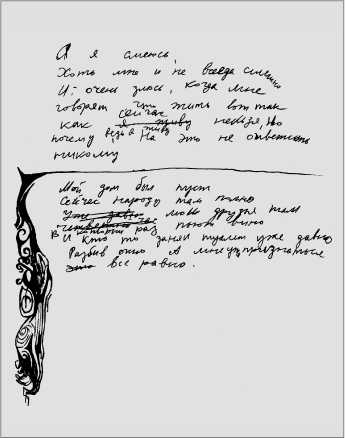 А я смеюсь,
Хоть мне и не всегда смешно
И очень злюсь, когда мне
говорят что жить вот так
сейчас
как я живу нельзя, Но
почему, ведь я живу, На это не ответить
никому
Мой дом был пуст
Сейчас народу там полно
Уже давно мои друзья там
В который раз пьют вино
И кто то занял туалет уже давно
Разбив окно А мне уж признаться
это все равно.